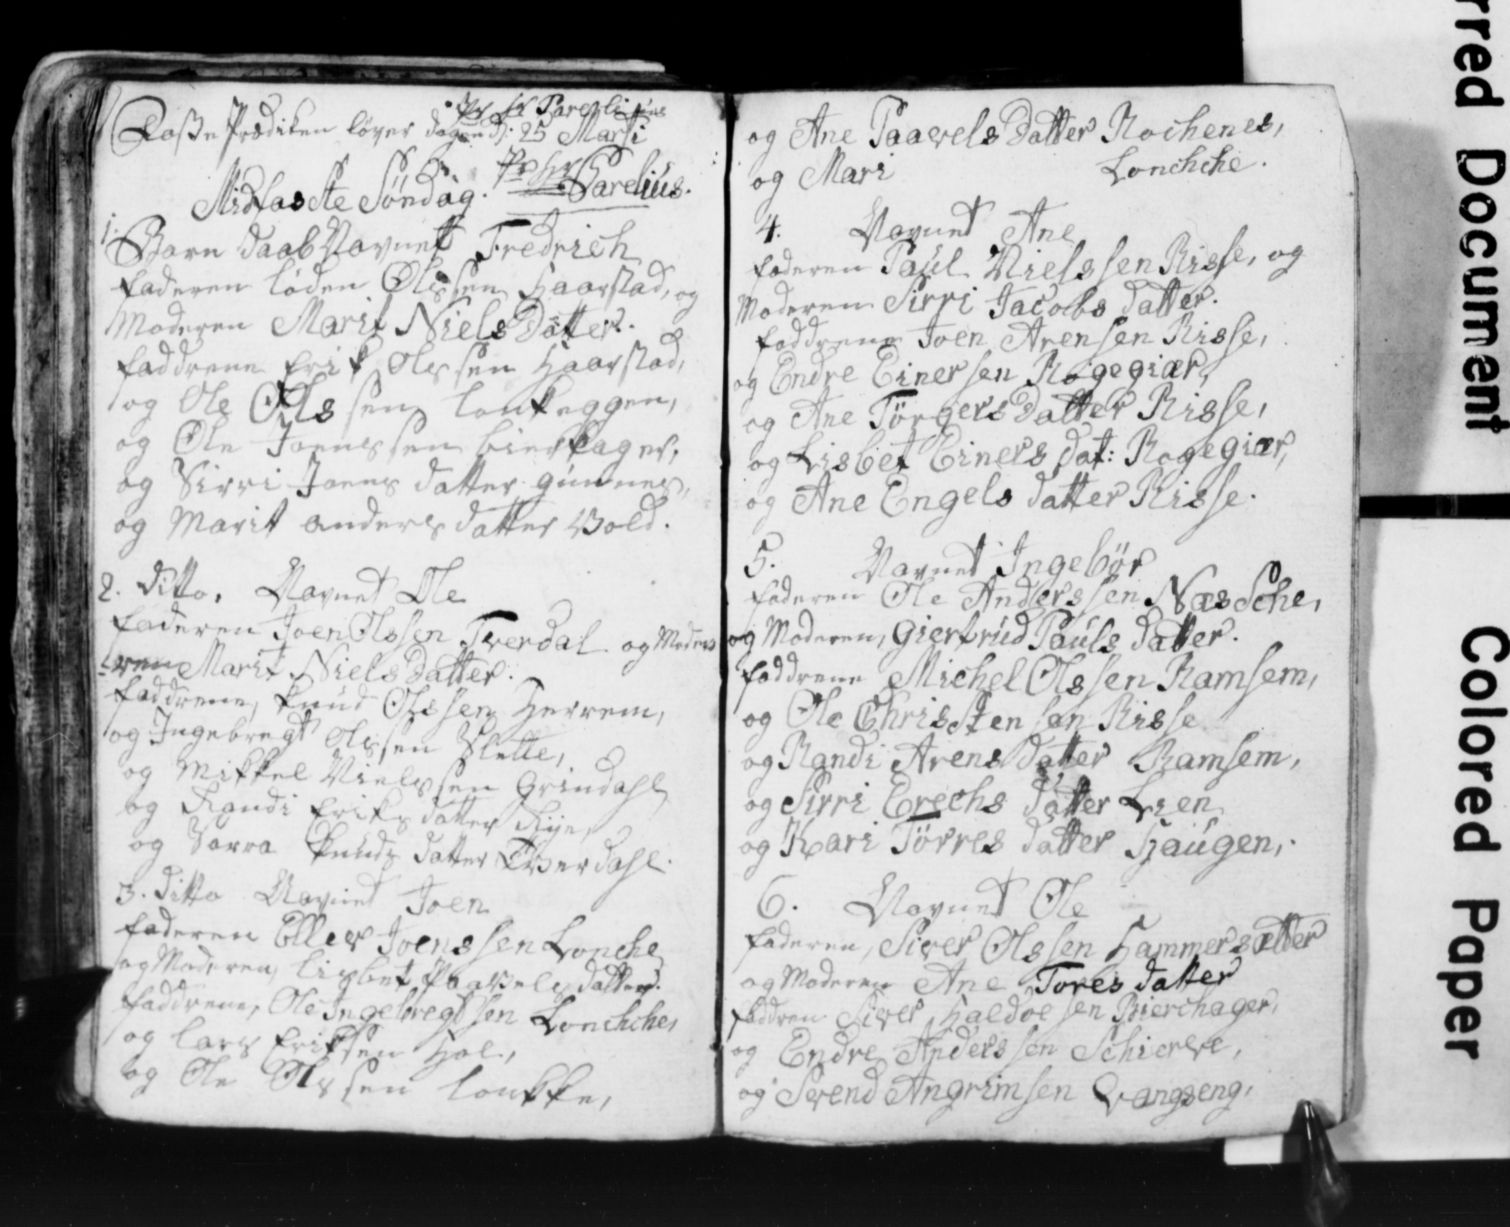 Pr hr Parelius
Faste Prædiken löver dagen d: 25 Marti
Midfaste Söndag. Pr hr Parelius.
1. Barn daab Navnet Fredrich
faderen loden Olssen Haarstad, og
Moderen Marit Niels Datter.
faddrene Erik Olssen Haarstad,
og Ole Olssen lonkeggen,
og Ole Joenssen bierkager,
og Sirri Joens datter gunnes,
og Marit anders datter Vold.
2. ditto. Navnet Ole
faderen Joen Olssen Tverdal og Mode
ren Marit Niels datter.
faddrene, knud Olssen Herrem,
og Ingebregt Olssen Slette,
og Mikkel Nielssen Grindahl
og Randi Eriks datter Rye,
og Sarra knuds datter Tverdahl.
3. ditto Navnet Joen
faderen Ellev Joenssen Lonche
og Moderen, lisbet Paavels datter.
faddrene, Ole Ingebregtssen Lonchche,
og lars Eriksen Hol,
og Ole Olssen lonkke,
og Ane Paavels Datter Rochenes,
og Mari Lonchche.
4. Navnet Ane
faderen Paul Nielssen Risse, og
Moderen Sirri Jacobs datter.
faddrene Joen Arensen Risse,
og Endre Einersen Rogegiær,
og Ane Törgers datter Risse,
og Lisbet Einers dat: Rogegiær,
og Ane Engels datter Risse.
5. Navnet Ingebör
faderen Ole Anderssen Næssche,
og Moderen, Giertrud Pauls datter.
faddrene Michel Olssen Ramsem,
og Ole Christensen Risse
og Randi Arens datter Ramsem,
og Sirri Erechs datter Lien
og Kari Törres datter Haugen,
6. Navnet Ole
faderen, Siver Olssen Hammersætter
og Moderen Ane Tores datter
faddren Siver Haldosen Bierchager,
og Endre Anderssen Schierve,
og Svend Angrimsen Vangseng,
rred Document
Colored Paper